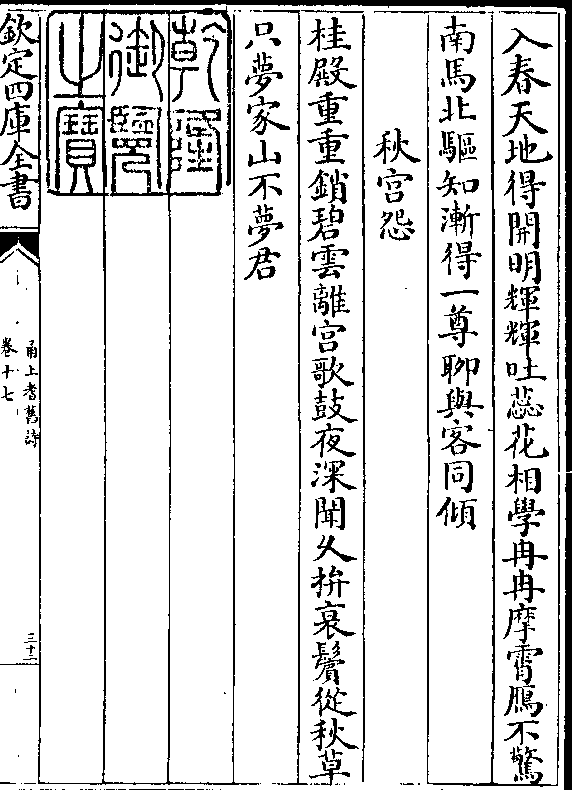 入春天地得開明輝輝吐蕊花相學冉冉摩霄鴈不驚
南馬北驅知漸得一尊聊與客同傾
秋宫怨
桂殿重重鎖碧雲離宫歌鼓夜深聞久拚衰鬢從秋草
只夢家山不夢君
乾隆
御覽
之寶
欽定四庫全書
甬上耆舊詩
卷十七
三十二